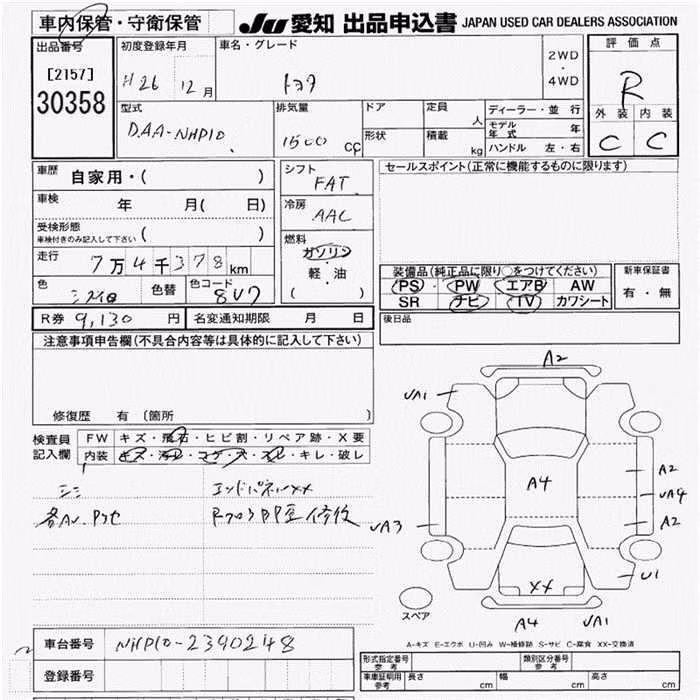 車内保管・守衛保管
JU 愛知 出品申込書 JAPAN USED CAR DEALERS ASSOCIATION
出品番号
[2157]
30358
初度登録年月
H26 12月
車名・グレード
トヨタ
2WD
・
4WD
評価点
R
外装 内装
C C
型式
DAA-NHP10
排気量
1500 cc
ドア
人
定員
形状
積載
kg
ディーラー・並 行
モデル年式 年
ハンドル 左・右
車歴
自家用・( )
車検
年 月( 日)
受検形態
車検付きのみ記入して下さい ( )
走行
7万4千378km
色
色替
色コード
8V7
シフト
FAT
冷房
AAC
燃料
ガソリン
・
軽・油
( )
セールスポイント(正常に機能するものに限ります)
装備品(純正品に限り○をつけてください)
PS・PW エアB AW
SR ナビ TV カワシート
新車保証書
有・無
後日品
R券 9,130 円
名変通知期限 月 日
注意事項申告欄(不具合内容等は具体的に記入して下さい)
修復歴 有〔箇所 〕
検査員
記入欄
FW キズ・飛石・ヒビ割・リペア跡・X要
内装 キズ・汚レ・コゲ・穴・スレ・キレ・破レ
シミ
エンドパネルXX
A2
UA1
A4
A2
UA4
A2
UA3
U1
XX
スペア
A4 UA1
A-キズ E-エクボ U-凹み W-補修跡 S-サビ C-腐食 XX-交換済
車台番号
NHP10-2390248
登録番号
形式指定番号
参考
類別区分番号
参考
車庫証明用
参考
長さ cm
幅 cm
高さ cm